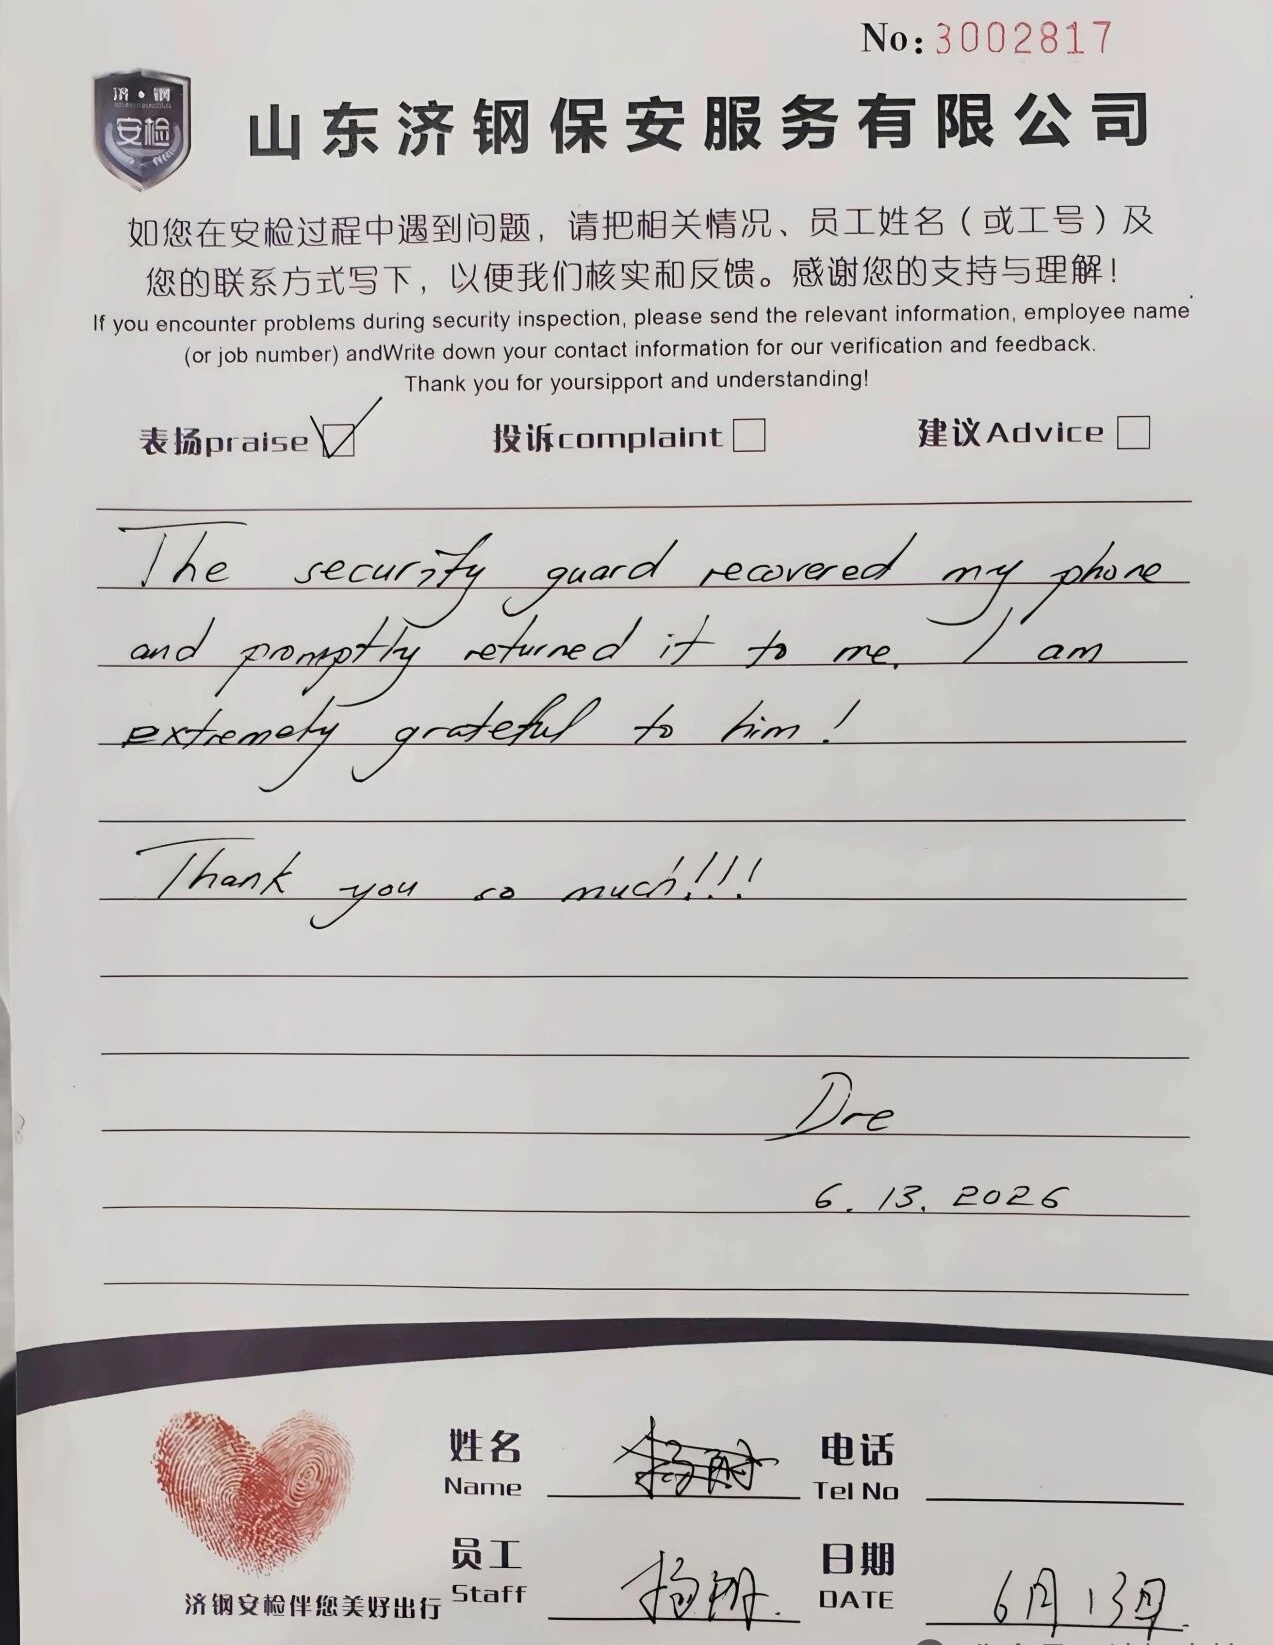 No: 3002817
济·钢
安检
山东济钢保安服务有限公司
如您在安检过程中遇到问题，请把相关情况、员工姓名（或工号）及
您的联系方式写下，以便我们核实和反馈。感谢您的支持与理解！
If you encounter problems during security inspection, please send the relevant information, employee name
(or job number) andWrite down your contact information for our verification and feedback.
Thank you for yoursipport and understanding!
表扬praise 投诉complaint 建议Advice
The security guard recovered my phone
and promptly returned it to me. I am
extremely grateful to him!
Thank you so much!!!!
Dre
6. 13. 2026
姓名 电话
Name Tel No
员工 日期
Staff DATE 6月13日.
济钢安检伴您美好出行